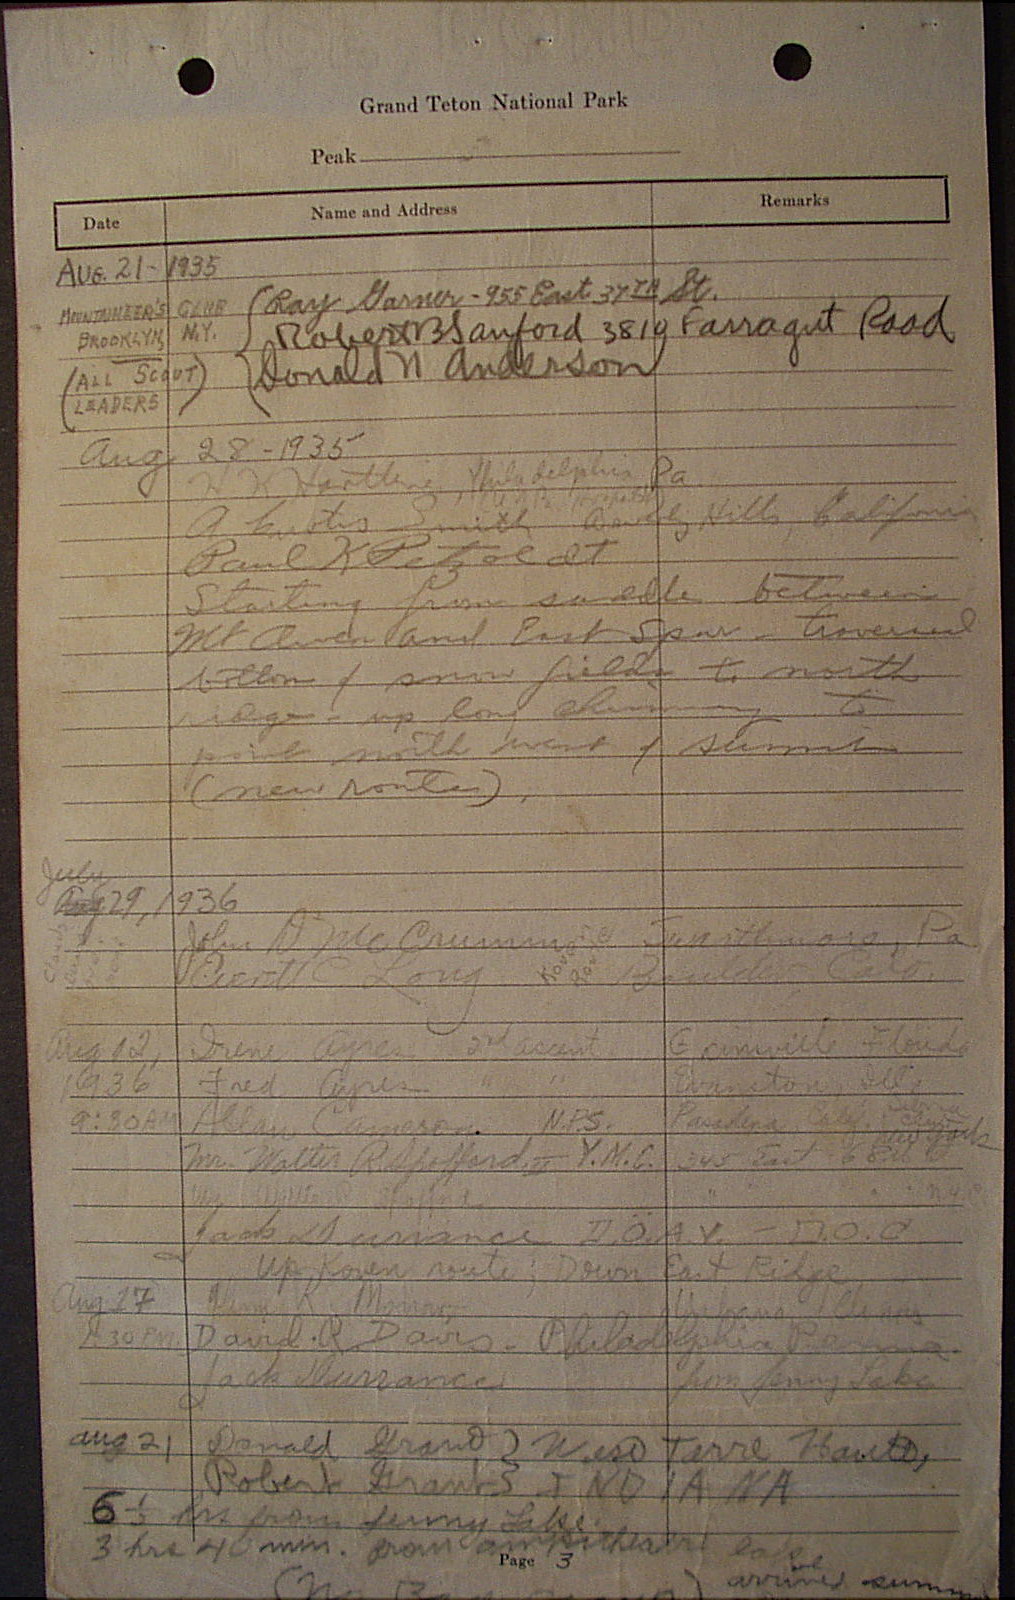 Grand Teton National Park
Peak
Date Name and Address Remarks
Aug. 21 - 1935
Mountaineer's Club
Brooklyn, N.Y.
(All Scout Leaders)
Ray Garner - 955 East 37TH St.
Robert B Sanford 3819 Farragut Road
Donald N Anderson
Aug 28 - 1935
H K Hartline, Philadelphia, Pa
A Smith Beverly Hills, California
Paul K Petzoldt
Starting from saddle between
Mt Owen and East Spur - traversed
bottom of snow fields to north
ridge - up long chimney to
point north west of summit
(new route).
July
Aug 29, 1936
John D McCrumm Swarthmore, Pa
C Long Boulder Colo.
Aug 12, Irene Ayres 2nd ascent Florida
1936 Fred Ayres " " Evanston, Ill.
9:30 AM Allan Cameron N.P.S. Pasadena
New York
Mr. Walter R Spofford II Y.M.C. 345 East 68
Jack Durrance - D.O.C
Up Koven route; Down East Ridge
Aug 17 K. Urbana Illinois
30 P.M. David R Davis - Philadelphia Penna.
Jack Durrance from Jenny Lake
Aug 21 Donald Grant } West Terre Haute,
Robert Grant } INDIANA
6 1/2 hrs from Jenny Lake.
3 hrs 40 min. from amphitheater lake
Page 3
arrived summit